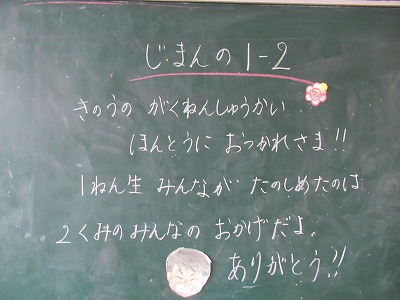 じまんの1-2
きのうの がくねんしゅうかい
ほんとうに おつかれさま!!
1ねん生 みんなが たのしめたのは
2くみのみんなの おかげだよ。
ありがとう!!